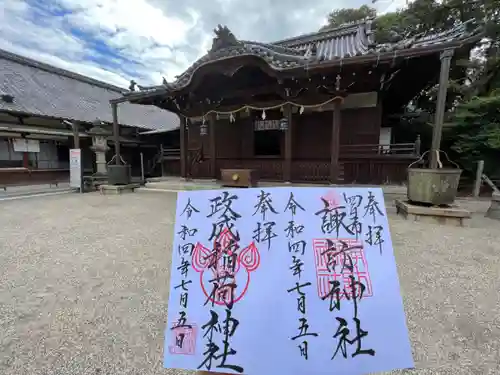 奉拝
四日市
諏訪神社
令和四年七月五日
奉拝
政成稲荷神社
令和四年七月五日